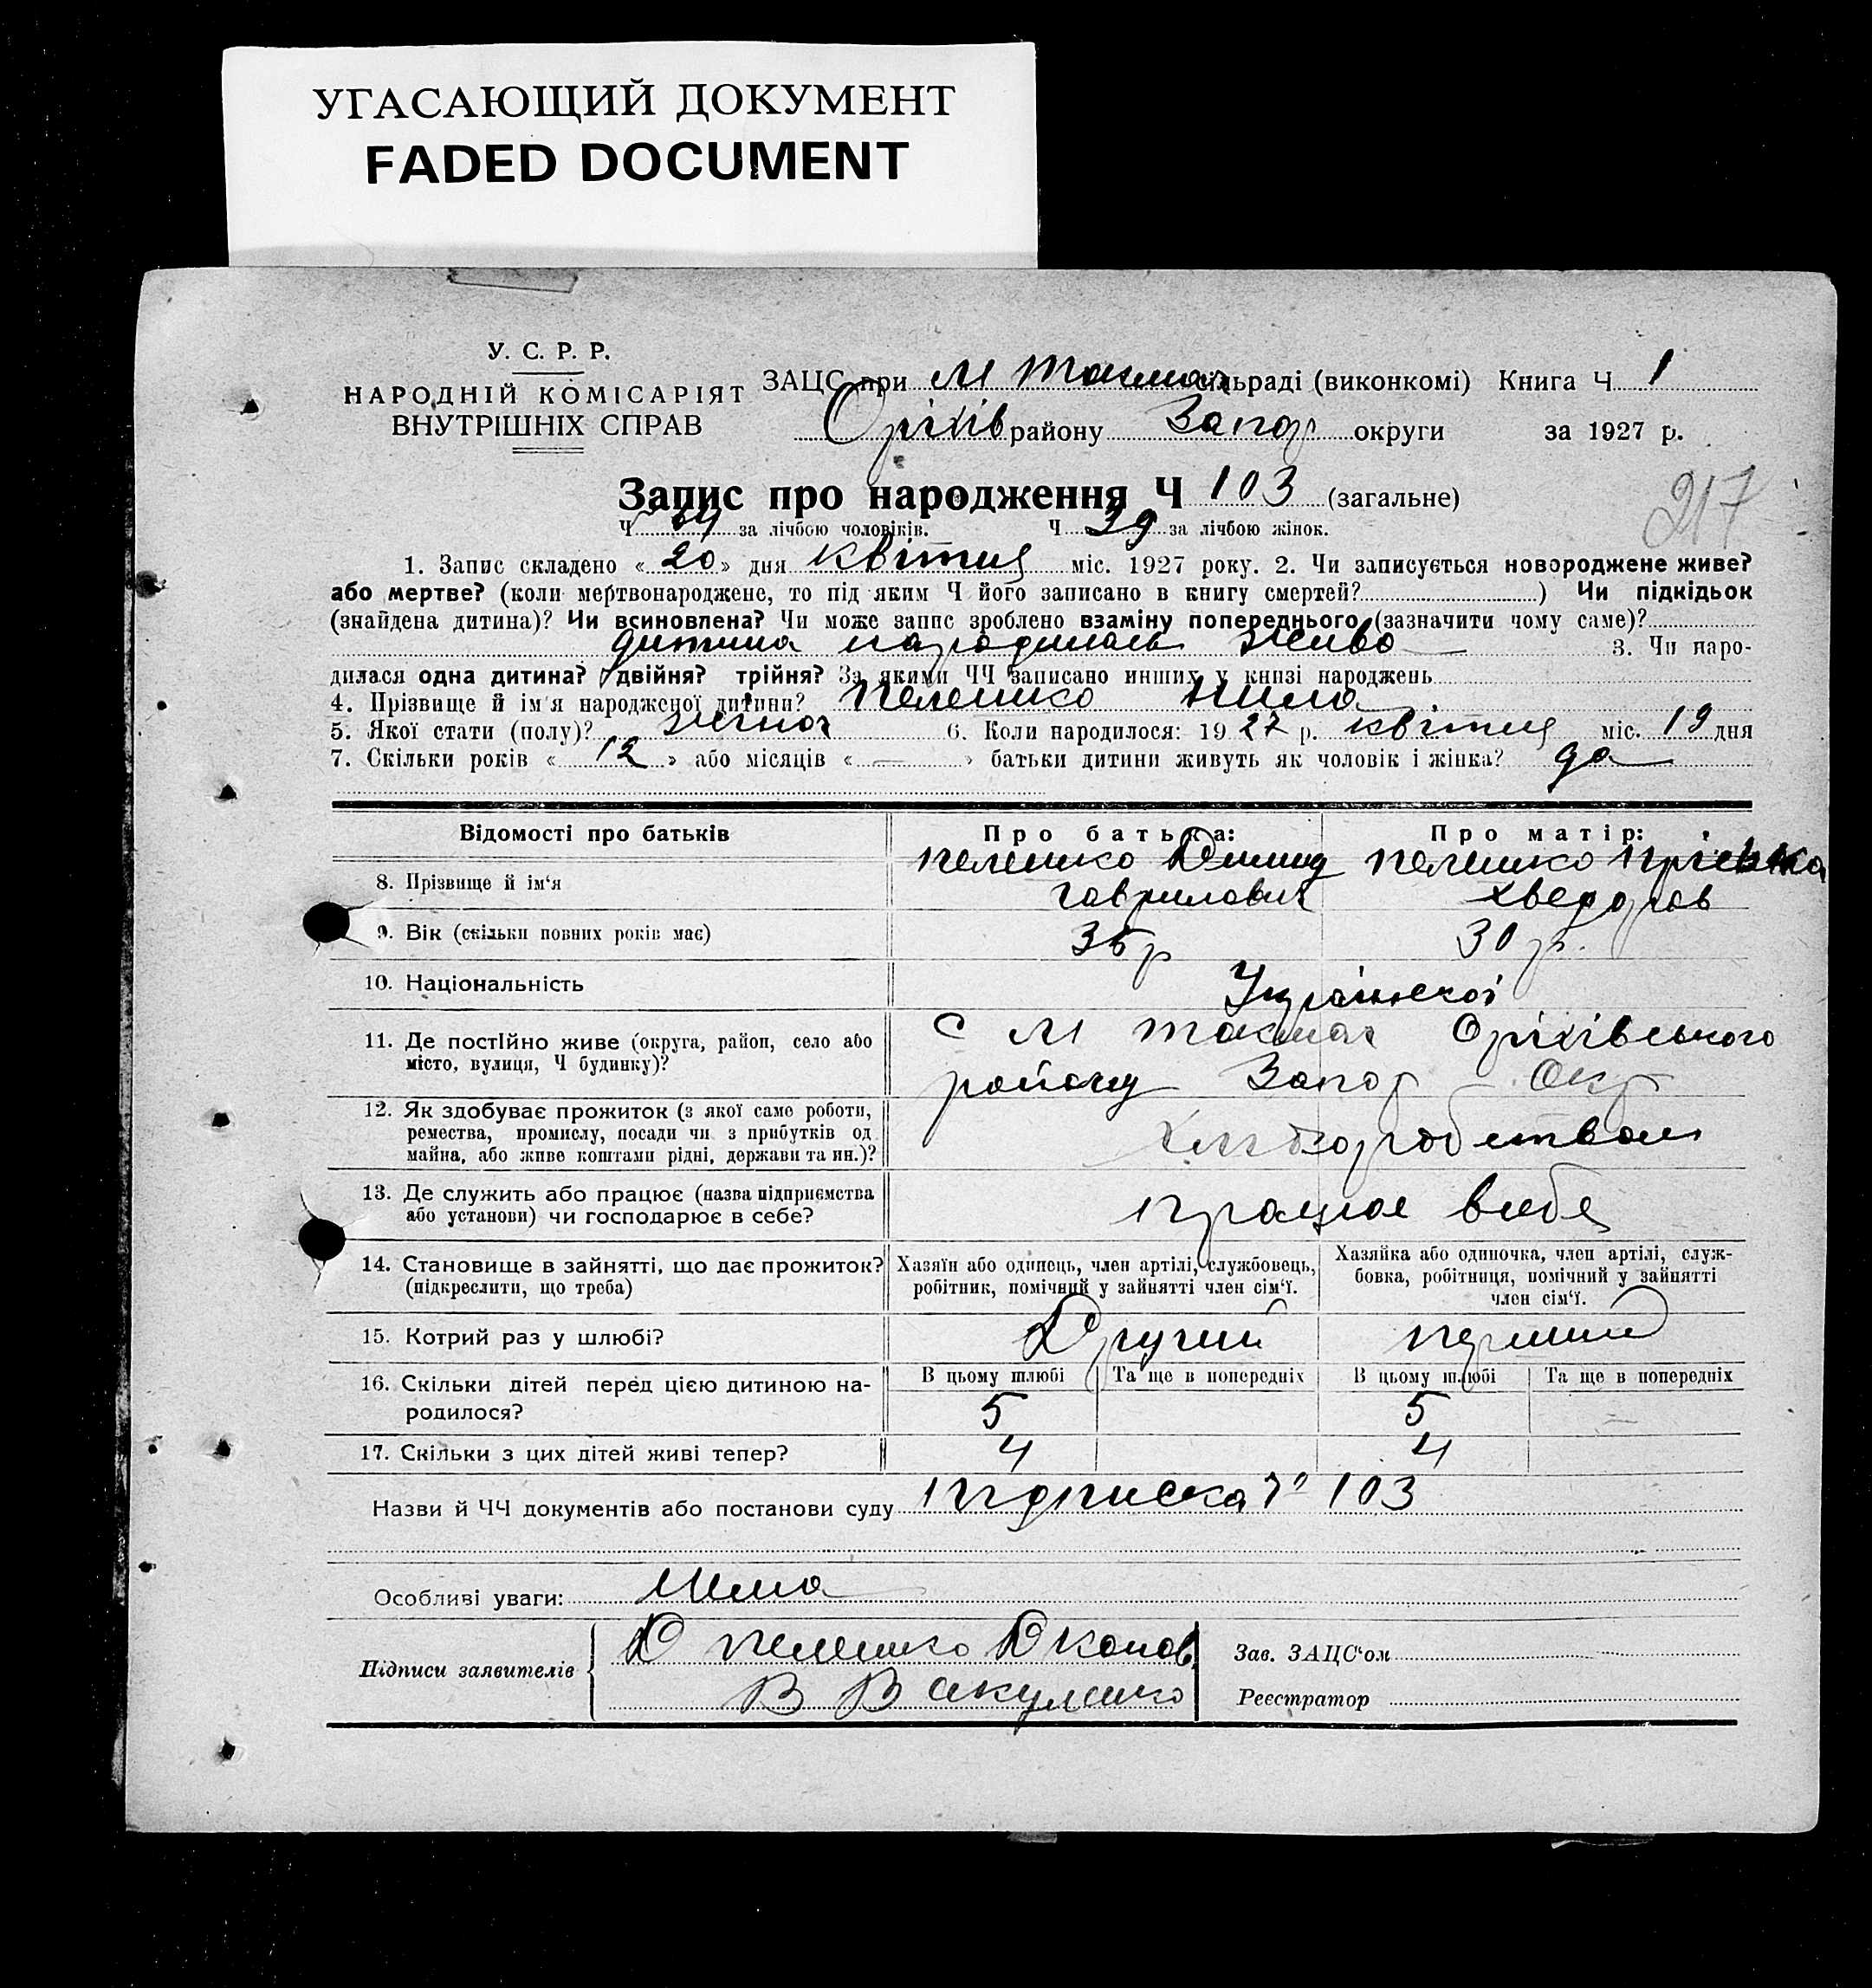 УГАСАЮЩИЙ ДОКУМЕНТ
FADED DOCUMENT
У. С. Р. Р.
НАРОДНІЙ КОМІСАРІЯТ
ВНУТРІШНІХ СПРАВ
ЗАЦС при М Токмач сільраді (виконкомі) Книга Ч 1
Оріхів району Запор округи за 1927 р.
217
Запис про народження Ч 103 (загальне)
Ч 64 за лічбою чоловіків. Ч 39 за лічбою жінок.
1. Запис складено « 20 » дня квітня міс. 1927 року. 2. Чи записується новороджене живе?
або мертве? (коли мертвонароджене, то під яким Ч його записано в книгу смертей? ) Чи підкідьок
(знайдена дитина)? Чи всиновлена? Чи може запис зроблено взаміну попереднього (зазначити чому саме)?
дитина народилась живо 3. Чи наро-
дилася одна дитина? двійня? трійня? За якими ЧЧ записано инших у книзі народжень
4. Прізвище й ім'я народженої дитини? Пелешко Нина
5. Якої стати (полу)? жіноч 6. Коли народилося: 19 27 р. квітня міс. 19 дня
7. Скільки років « 12 » або місяців « — » батьки дитини живуть як чоловік і жінка? да
Відомості про батьків
Про батька:
Про матір:
8. Прізвище й ім'я
Пелешко Демид Гаврилович
Пелешко Хведоров
9. Вік (скільки повних років має)
35 р
30 р.
10. Національність
Української
11. Де постійно живе (округа, район, село або
місто, вулиця, Ч будинку)?
С М Токмач Оріхівського
району Запор Окр
12. Як здобуває прожиток (з якої саме роботи,
ремества, промислу, посади чи з прибутків од
майна, або живе коштами рідні, держави та ин.)?
Хліборобством
13. Де служить або працює (назва підприємства
або установи) чи господарює в себе?
працює в себе
14. Становище в зайнятті, що дає прожиток?
(підкреслити, що треба)
Хазяїн або одинець, член артілі, службовець,
робітник, помічний у зайнятті член сім'ї.
Хазяйка або одиночка, член артілі, служ-
бовка, робітниця, помічний у зайнятті
член сім'ї.
15. Котрий раз у шлюбі?
Другий
первий
16. Скільки дітей перед цією дитиною на-
родилося?
В цьому шлюбі
Та ще в попередніх
В цьому шлюбі
Та ще в попередніх
5
5
17. Скільки з цих дітей живі тепер?
4
4
Назви й ЧЧ документів або постанови суду Підписка № 103
Особливі уваги: Нема
Підписи заявителів
Д Пелешко
В Вакуленко
Зав. ЗАЦС'ом
Реєстратор